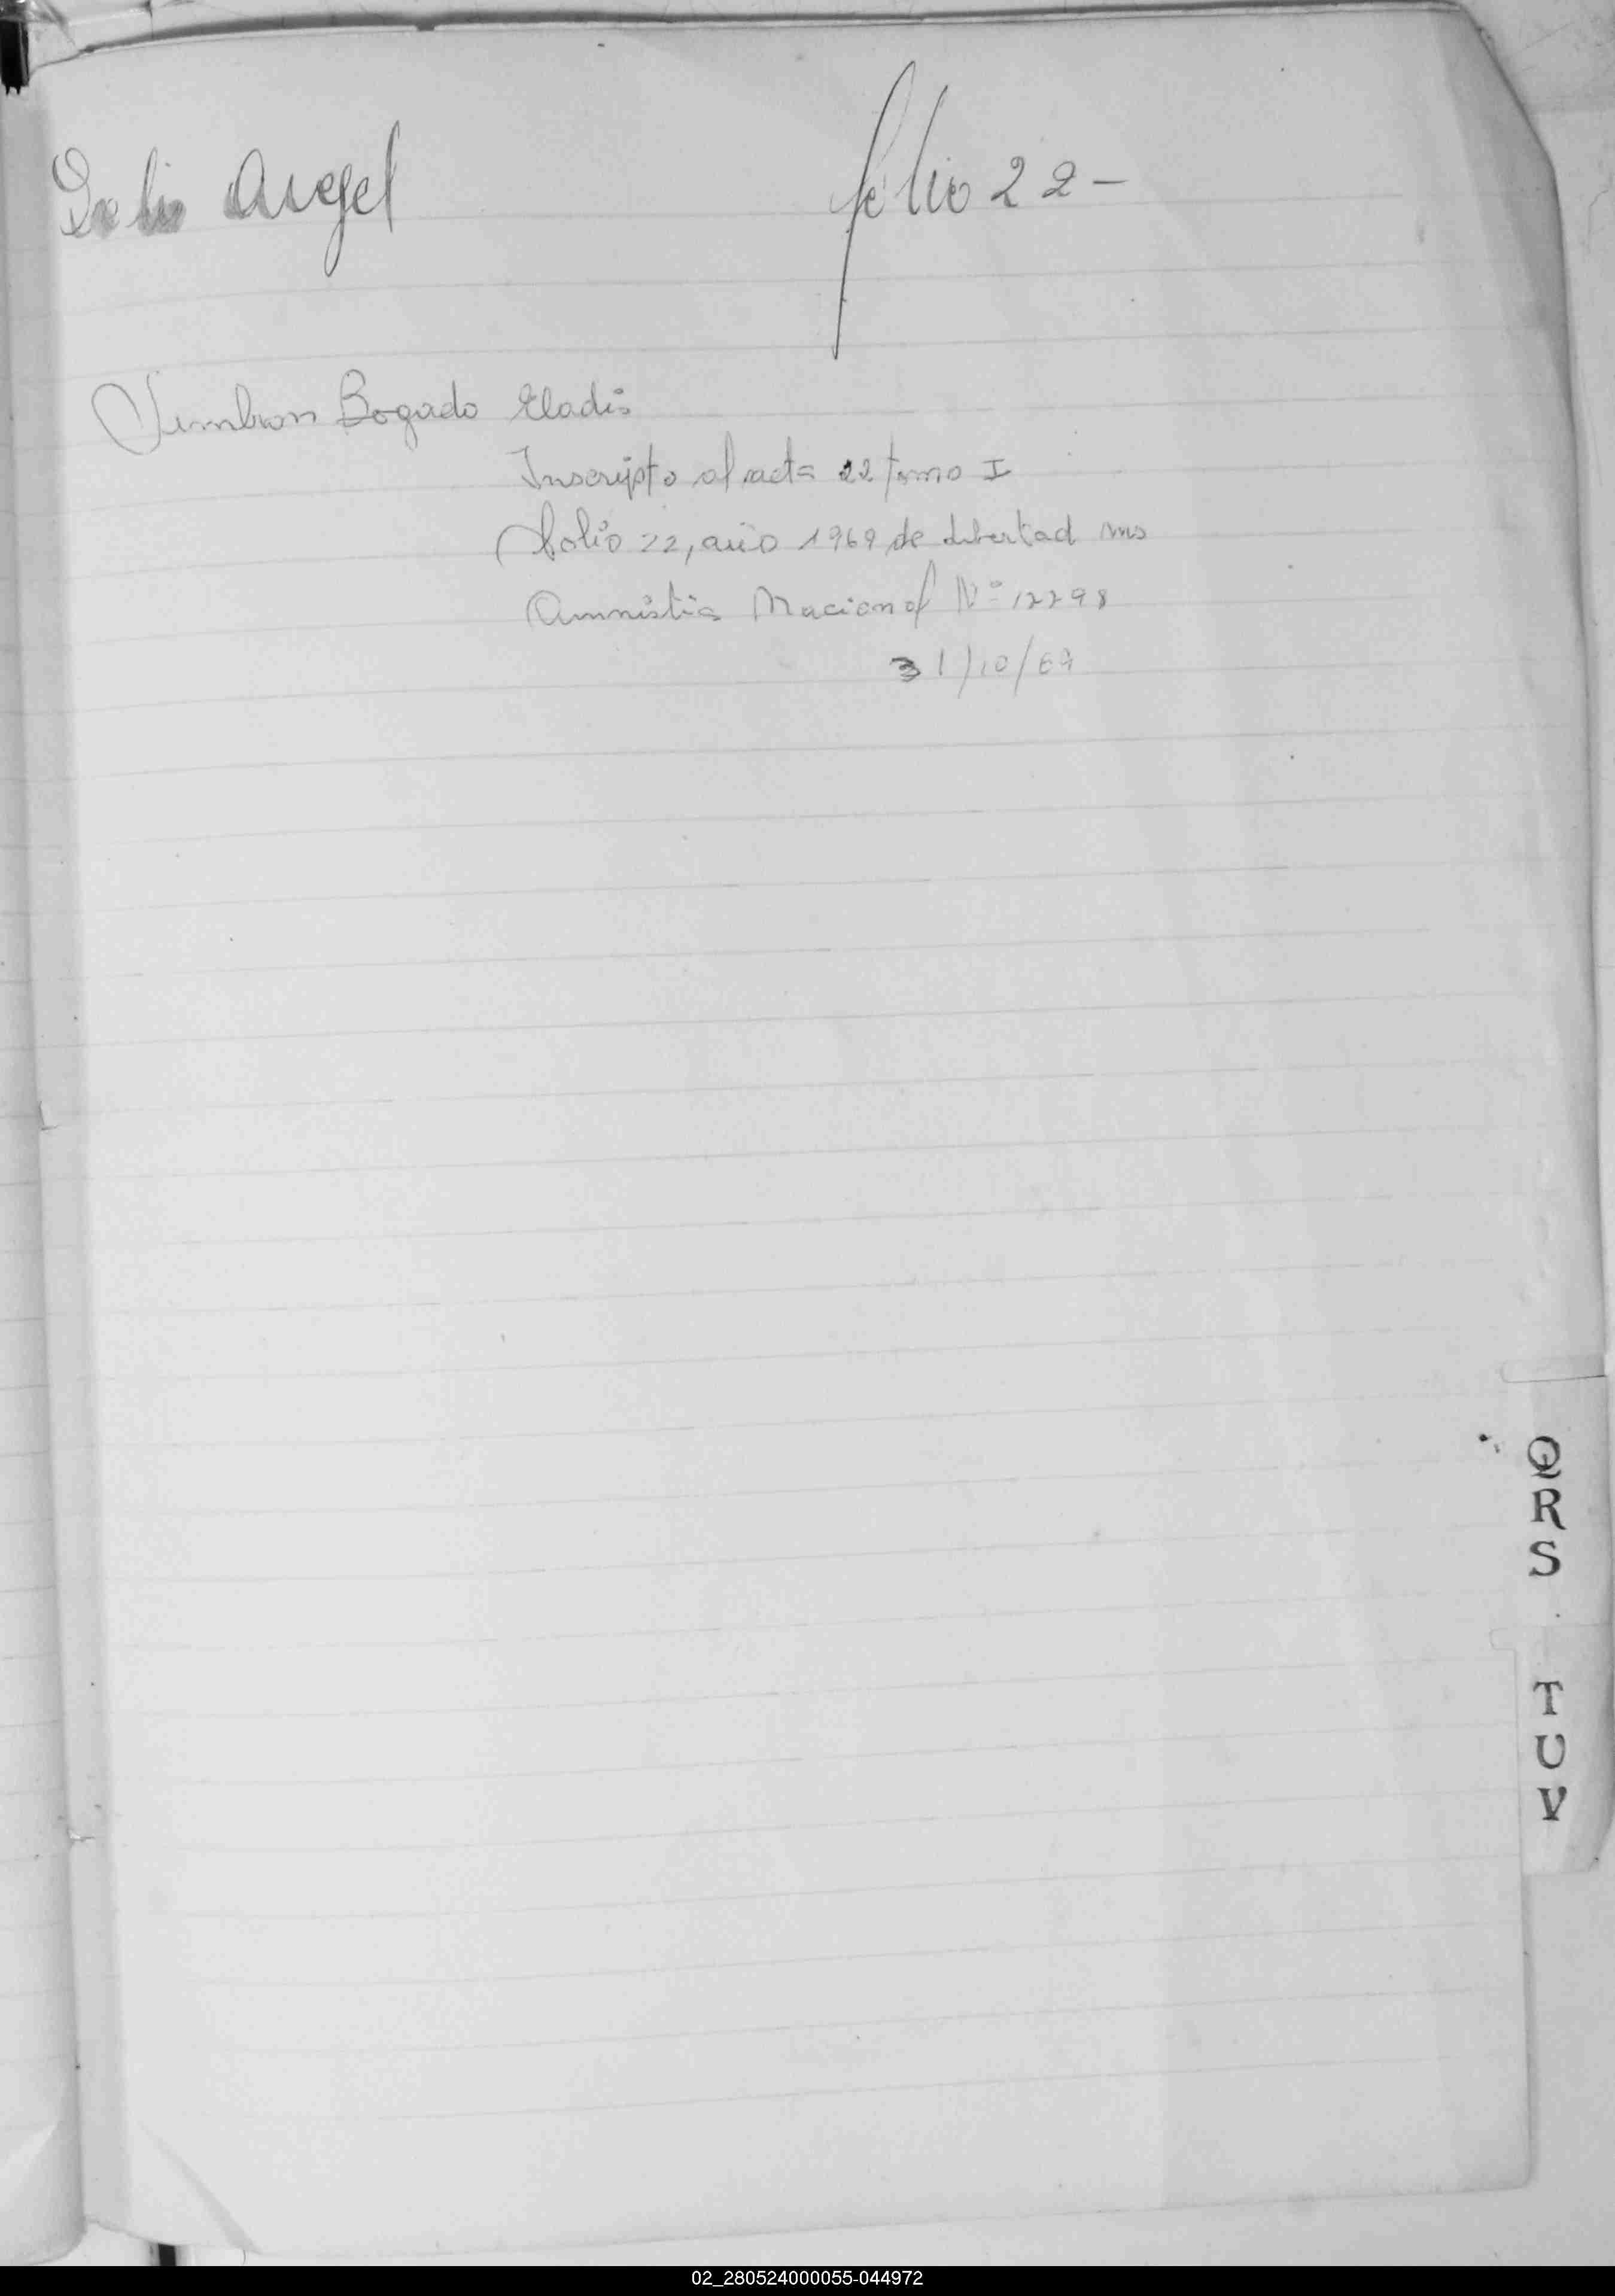 Delio Angel folio 22 -
Bogado Eladio
Inscripto al acta 22 tomo I
folio 22, año 1969 de Libertad ms
Amnistia Nacional Nº 12298
31/10/69
Q
R
S
T
U
V
02_280524000055-044972